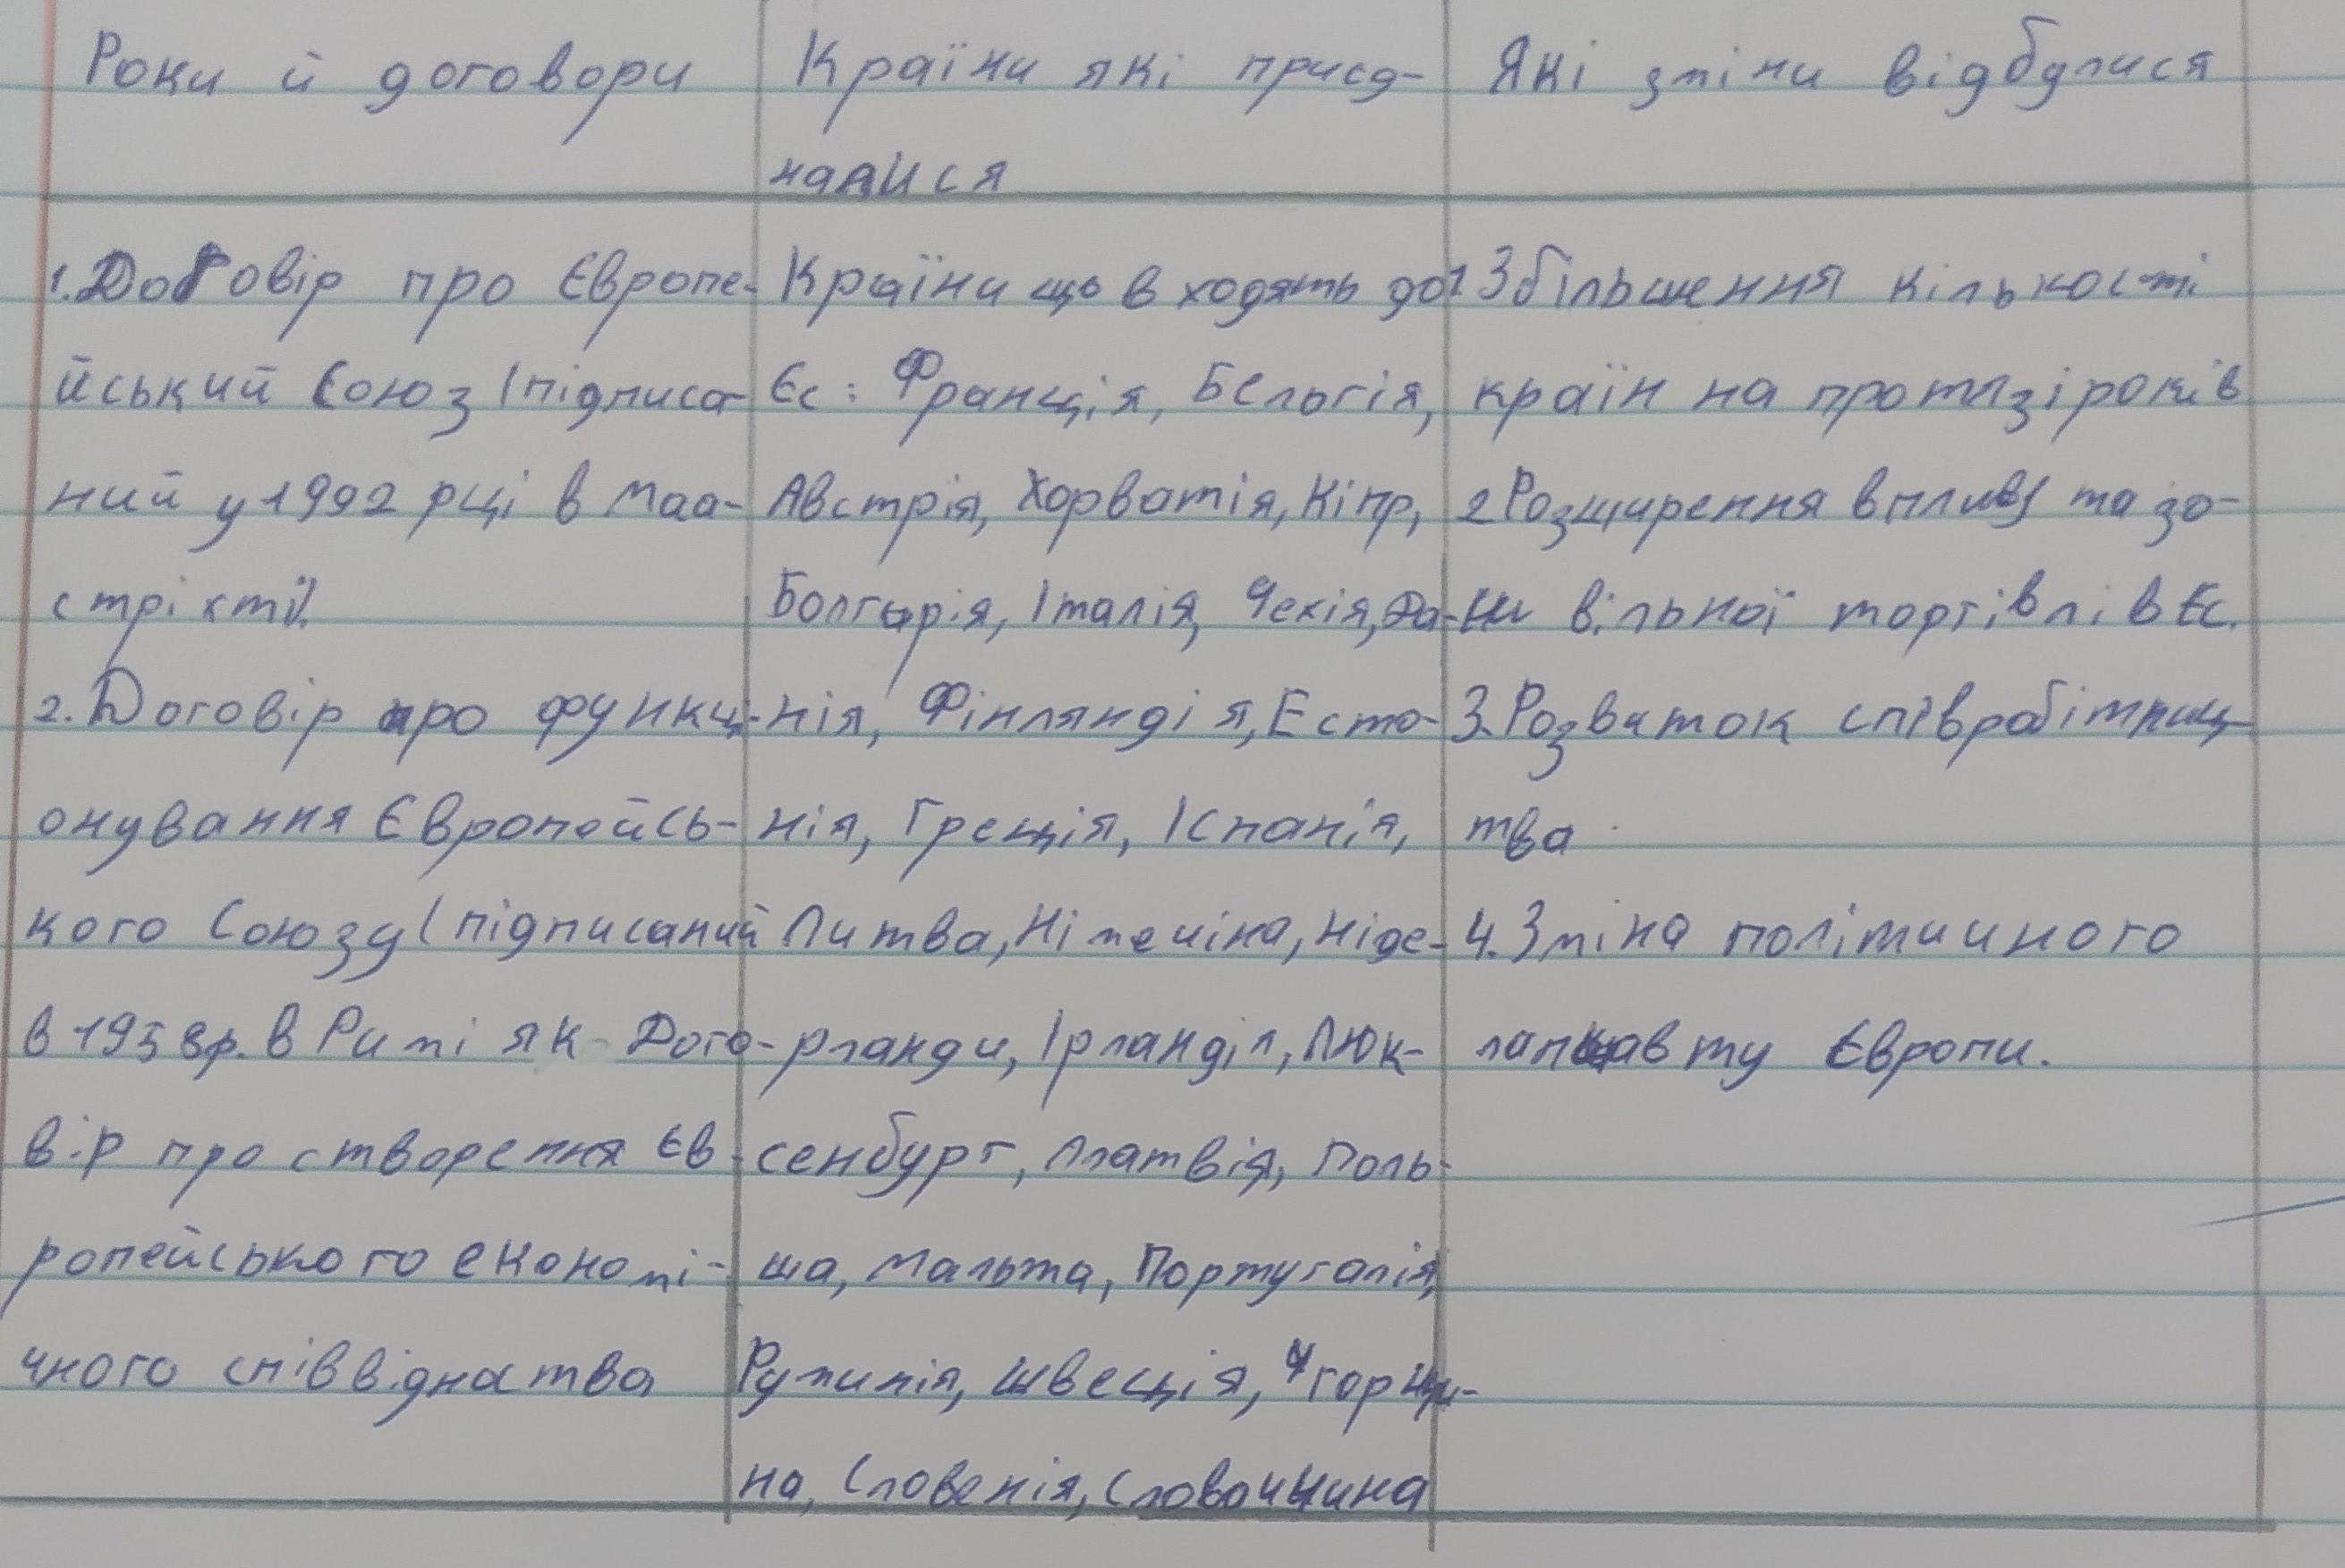 Роки й договори
Країни які приєд-
налися
Які зміни відбулися
1. Договір про Європе-
йський Союз (підписа-
ний у 1992 рці в Маа-
стріхті).
2. Договір про функці-
онування Європейсь-
кого Союзу (підписаний
в 1958р. в Римі як Дого-
вір про створення Єв-
ропейського економі-
чного співвідноства
Країни що входять до
Єс: Франція, Бельгія,
Австрія, Хорватія, Кіпр,
Болгарія, Італія, Чехія, Да-
нія, Фінляндія, Есто-
нія, Греція, Іспанія,
Литва, Німечіна, Ніде-
рланди, Ірландія, Люк-
сенбург, Латвія, Поль-
ша, Мальта, Португалія,
Руминія, Швеція, Угорщи-
на, Словенія, Словаччина
1 Збільшення кількості
країн на протязі років
2 Розширення впливу та зо-
ни вільної торгівлі в Єс.
3. Розвиток співробітниц-
тва
4. Зміна політичного
Європи.